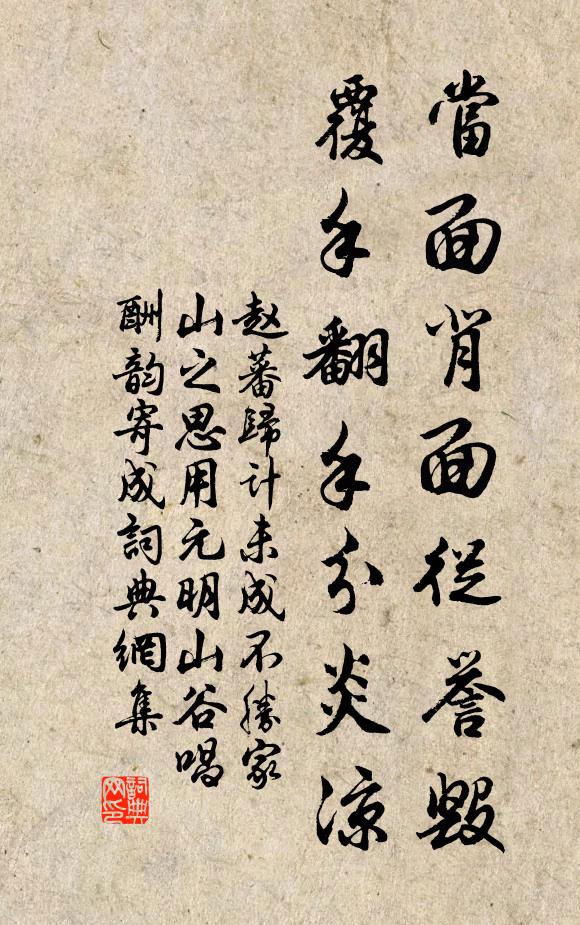 當面背面從誉毀
覆手翻手分炎凉
赵蕃歸计未成不勝家
山之思用元明山谷唱
酬韵寄成詞典網集
詞典
网印